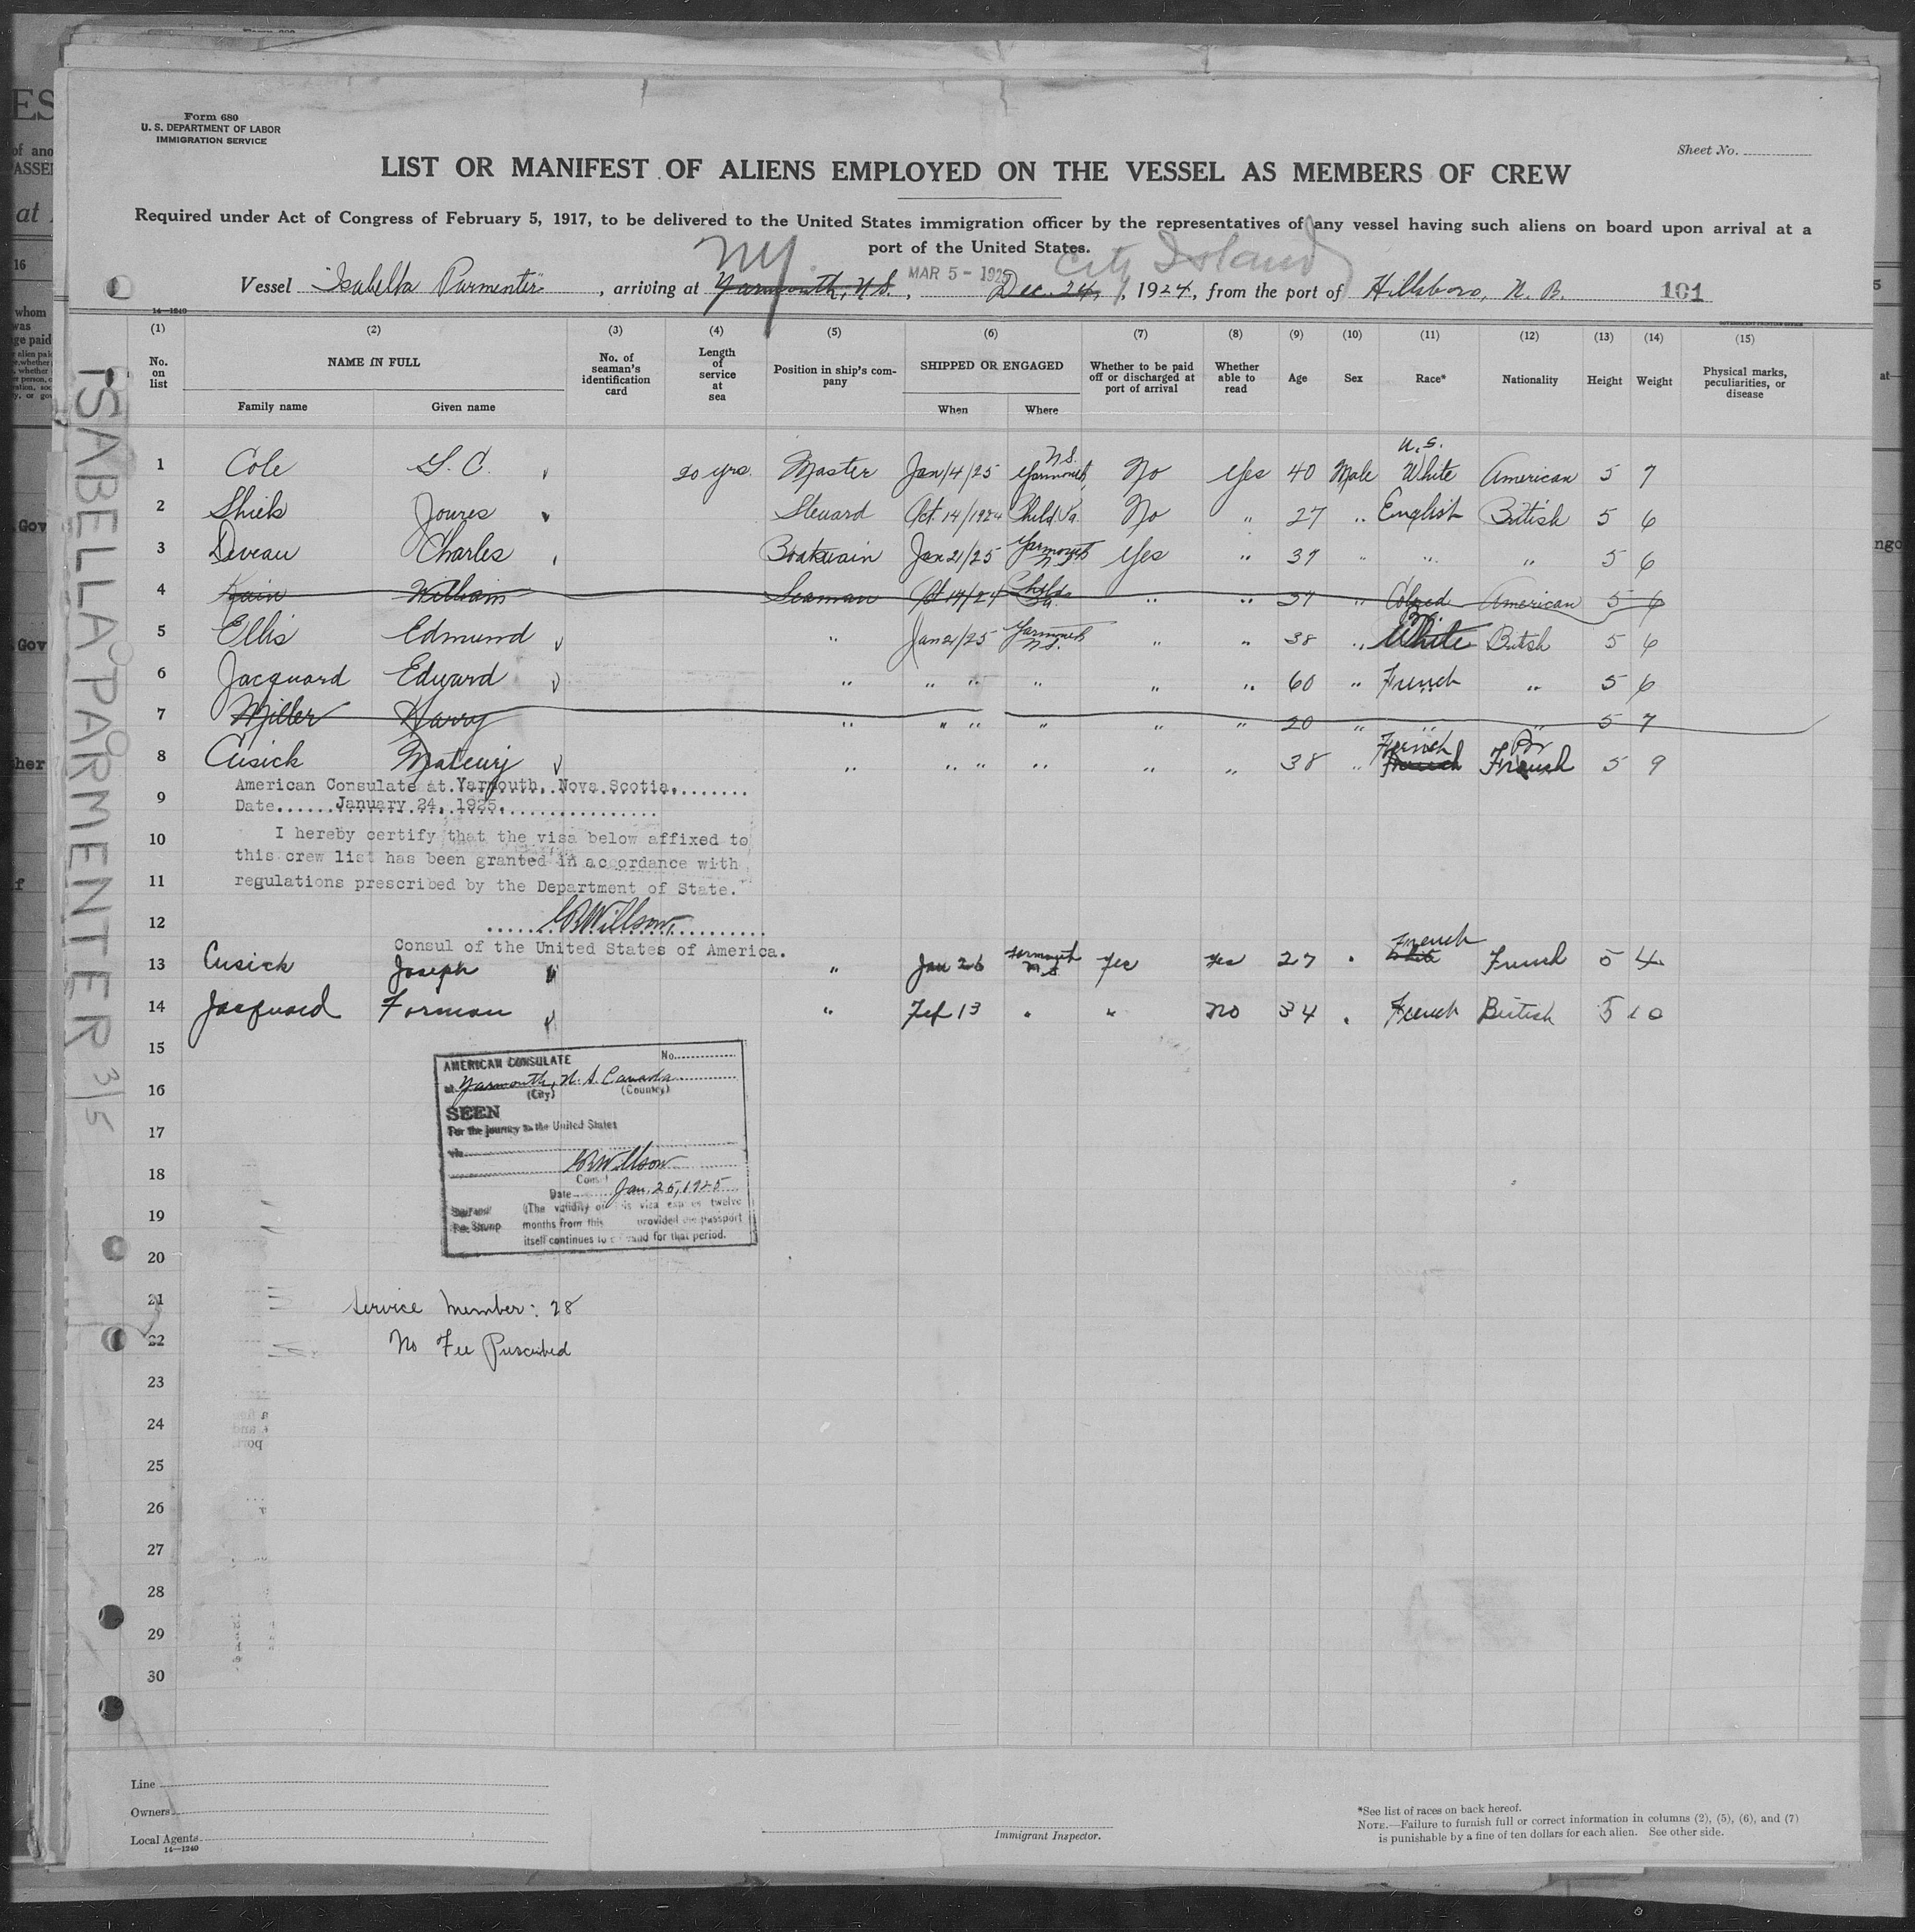 Form 680
U. S. DEPARTMENT OF LABOR
IMMIGRATION SERVICE
Sheet No.
LIST OR MANIFEST OF ALIENS EMPLOYED ON THE VESSEL AS MEMBERS OF CREW
Required under Act of Congress of February 5, 1917, to be delivered to the United States immigration officer by the representatives of any vessel having such aliens on board upon arrival at a
port of the United States.
NY City Island
Vessel "Isabella Parmenter" , arriving at Yarmouth, N.S. , MAR 5 - 1925 Dec. 24, , 1924, from the port of Hillsboro, N. B. 101
14—1240
(1) (2) (3) (4) (5) (6) (7) (8) (9) (10) (11) (12) (13) (14) (15)
No. on list NAME IN FULL No. of seaman's identification card Length of service at sea Position in ship's company SHIPPED OR ENGAGED Whether to be paid off or discharged at port of arrival Whether able to read Age Sex Race* Nationality Height Weight Physical marks, peculiarities, or disease
Family name Given name When Where
1 Cole G. C. 20 yrs. Master Jan/4/25 Yarmouth, N.S. No Yes 40 Male U.S. White American 5 7
2 Shiels Steward Oct. 14/1924 No " 27 " English British 5 6
3 Deveau Charles Boatswain Jan 21/25 Yarmouth N.S. Yes " 37 " " " 5 6
4 William Seaman Oct 14/24 " " 37 " Colored American 5 6
5 Ellis Edmund " Jan 21/25 Yarmouth N.S. " " 38 " White British 5 6
6 Jacquard Edward " " " " " " 60 " French " 5 6
7 Miller Harry " " " " " " 20 " " " 5 7
8 Cusick " " " " " " 38 " French French Br French 5 9
9 American Consulate at Yarmouth, Nova Scotia.
Date January 24, 1925.
10 I hereby certify that the visa below affixed to
this crew list has been granted in accordance with
11 regulations prescribed by the Department of State.
12 Willson
Consul of the United States of America.
13 Cusick Joseph " Jan 26 Yarmouth N.S. Yes Yes 27 " French White French 5 4
14 Jacquard Forman " Feb 13 " " No 34 " French British 5 10
15
AMERICAN CONSULATE No.
16 at Yarmouth, N. S. Canada
(City) (Country)
SEEN
17 For the journey to the United States
via
18 Willson
Consul
Date Jan. 25, 1925
19 (The validity of this visa expires twelve
Fee Stamp months from this provided the passport
itself continues to be valid for that period.
20
21 Service Number: 28
22 No Fee Prescribed
23
24
25
26
27
28
29
30
ISABELLA PARMENTER 3/5
Line
Owners
Local Agents
14—1240
Immigrant Inspector.
*See list of races on back hereof.
NOTE.—Failure to furnish full or correct information in columns (2), (5), (6), and (7)
is punishable by a fine of ten dollars for each alien. See other side.